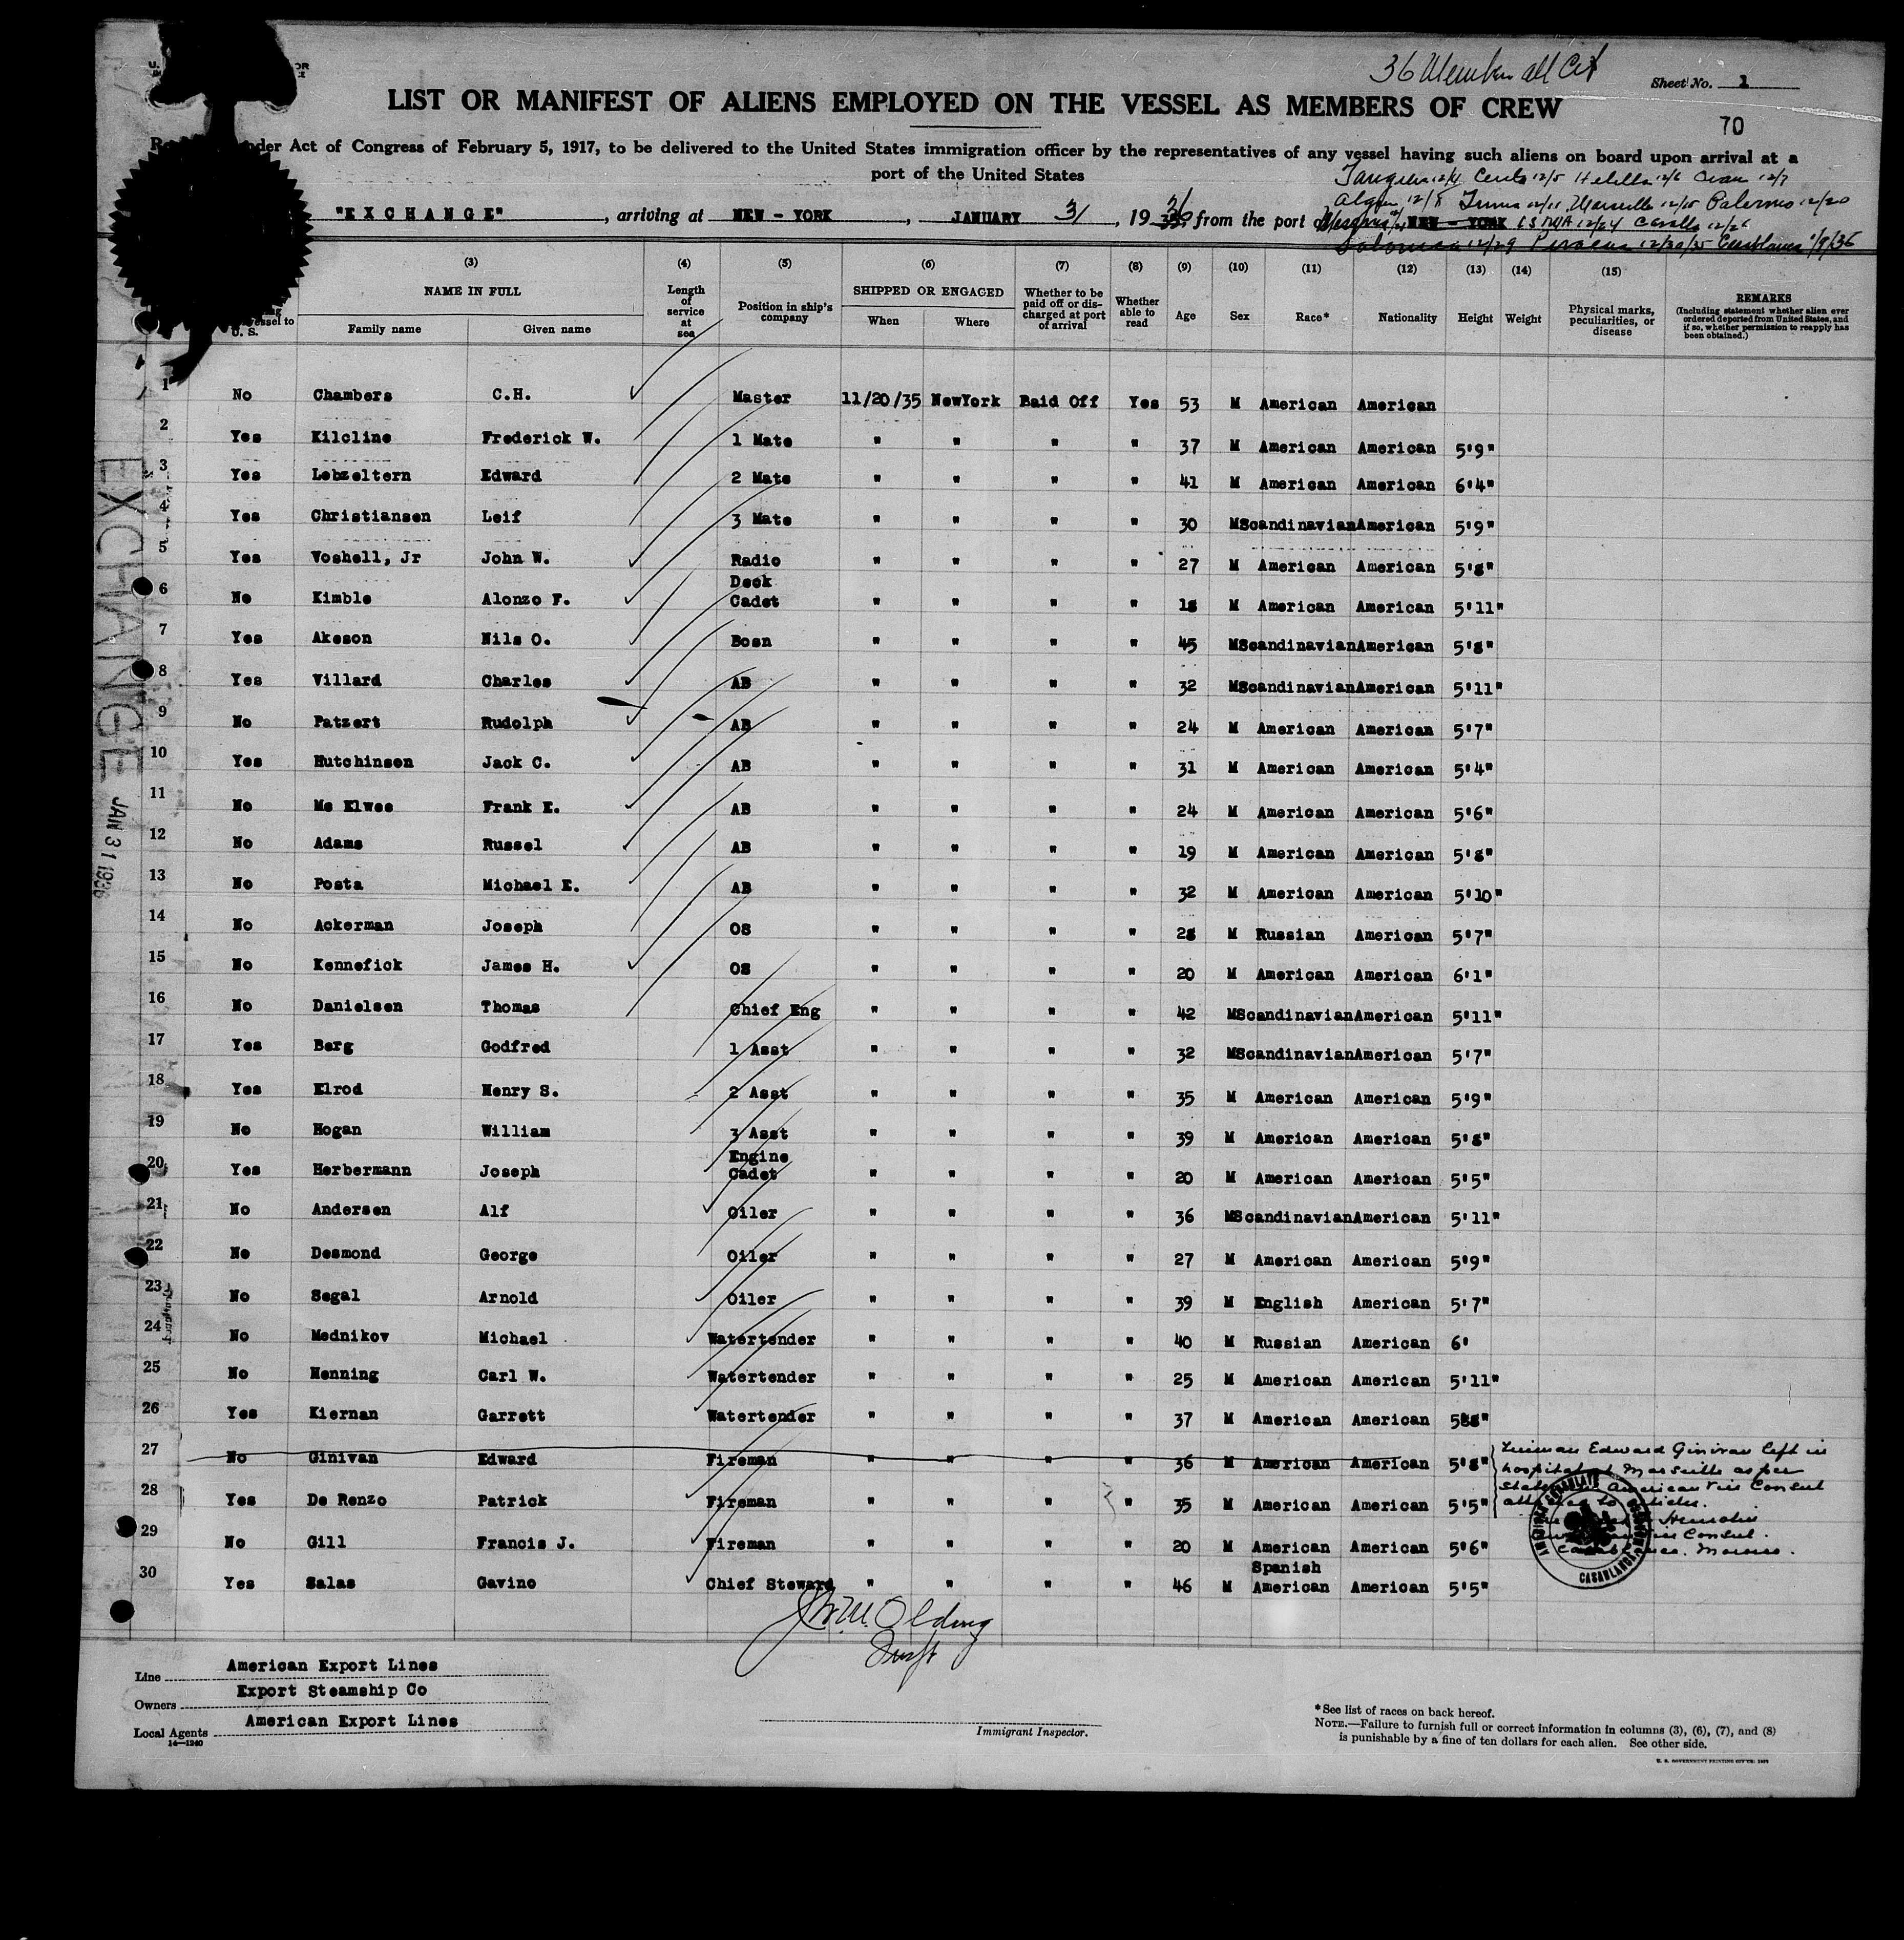 36 Members all Cit
Sheet No. 1
LIST OR MANIFEST OF ALIENS EMPLOYED ON THE VESSEL AS MEMBERS OF CREW
70
under Act of Congress of February 5, 1917, to be delivered to the United States immigration officer by the representatives of any vessel having such aliens on board upon arrival at a
port of the United States
12/4 Ceuta 12/5 Melilla 12/6 Oran 12/7
12/8 12/11 Marseille 12/15 Palermo 12/20
"EXCHANGE", arriving at NEW - YORK, JANUARY 31, 19 from the port of NEW - YORK 12/24 Cavalla 12/26
12/29 Piraeus 12/30/35 Casablanca 1/9/36
(3) (4) (5) (6) (7) (8) (9) (10) (11) (12) (13) (14) (15)
vessel to U. S.
NAME IN FULL
Family name Given name
Length of service at sea
Position in ship's company
SHIPPED OR ENGAGED
When Where
Whether to be paid off or discharged at port of arrival
Whether able to read
Age Sex Race* Nationality Height Weight
Physical marks, peculiarities, or disease
REMARKS
(Including statement whether alien ever ordered deported from United States, and if so, whether permission to reapply has been obtained.)
1 No Chambers C.H. Master 11/20/35 NewYork Paid Off Yes 53 M American American
2 Yes Kilcline Frederick W. 1 Mate " " " " 37 M American American 5'9"
3 Yes Lebzeltern Edward 2 Mate " " " " 41 M American American 6'4"
4 Yes Christiansen Leif 3 Mate " " " " 30 M Scandinavian American 5'9"
5 Yes Voshell, Jr John W. Radio " " " " 27 M American American 5'8"
6 No Kimble Alonzo F. Deck Cadet " " " " 18 M American American 5'11"
7 Yes Akeson Nils O. Bosn " " " " 45 M Scandinavian American 5'8"
8 Yes Villard Charles AB " " " " 32 M Scandinavian American 5'11"
9 No Patzert Rudolph AB " " " " 24 M American American 5'7"
10 Yes Hutchinsen Jack C. AB " " " " 31 M American American 5'4"
11 No Mc Elwee Frank E. AB " " " " 24 M American American 5'6"
12 No Adams Russel AB " " " " 19 M American American 5'8"
13 No Posta Michael E. AB " " " " 32 M American American 5'10"
14 No Ackerman Joseph OS " " " " 28 M Russian American 5'7"
15 No Kennefick James H. OS " " " " 20 M American American 6'1"
16 No Danielsen Thomas Chief Eng " " " " 42 M Scandinavian American 5'11"
17 Yes Berg Godfred 1 Asst " " " " 32 M Scandinavian American 5'7"
18 Yes Elrod Henry S. 2 Asst " " " " 35 M American American 5'9"
19 No Hogan William 3 Asst " " " " 39 M American American 5'8"
20 Yes Herbermann Joseph Engine Cadet " " " " 20 M American American 5'5"
21 No Andersen Alf Oiler " " " " 36 M Scandinavian American 5'11"
22 No Desmond George Oiler " " " " 27 M American American 5'9"
23 No Segal Arnold Oiler " " " " 39 M English American 5'7"
24 No Mednikov Michael Watertender " " " " 40 M Russian American 6'
25 No Henning Carl W. Watertender " " " " 25 M American American 5'11"
26 Yes Kiernan Garrett Watertender " " " " 37 M American American 5'8"
27 No Ginivan Edward Fireman " " " " 36 M American American 5'8"
Fireman Edward Ginivan left in
hospital at Marseille as per
American Vice Consul
attached to articles.
Vice Consul.
Casablanca, Morocco.
28 Yes De Renzo Patrick Fireman " " " " 35 M American American 5'5"
29 No Gill Francis J. Fireman " " " " 20 M American American 5'6"
30 Yes Salas Gavino Chief Steward " " " " 46 M Spanish American American 5'5"
AMERICAN CONSULATE CASABLANCA MOROCCO
EXCHANGE JAN 31 1936
Olding
Insp
Line American Export Lines
Owners Export Steamship Co
Local Agents American Export Lines
14—1240
Immigrant Inspector.
*See list of races on back hereof.
NOTE.—Failure to furnish full or correct information in columns (3), (6), (7), and (8)
is punishable by a fine of ten dollars for each alien. See other side.